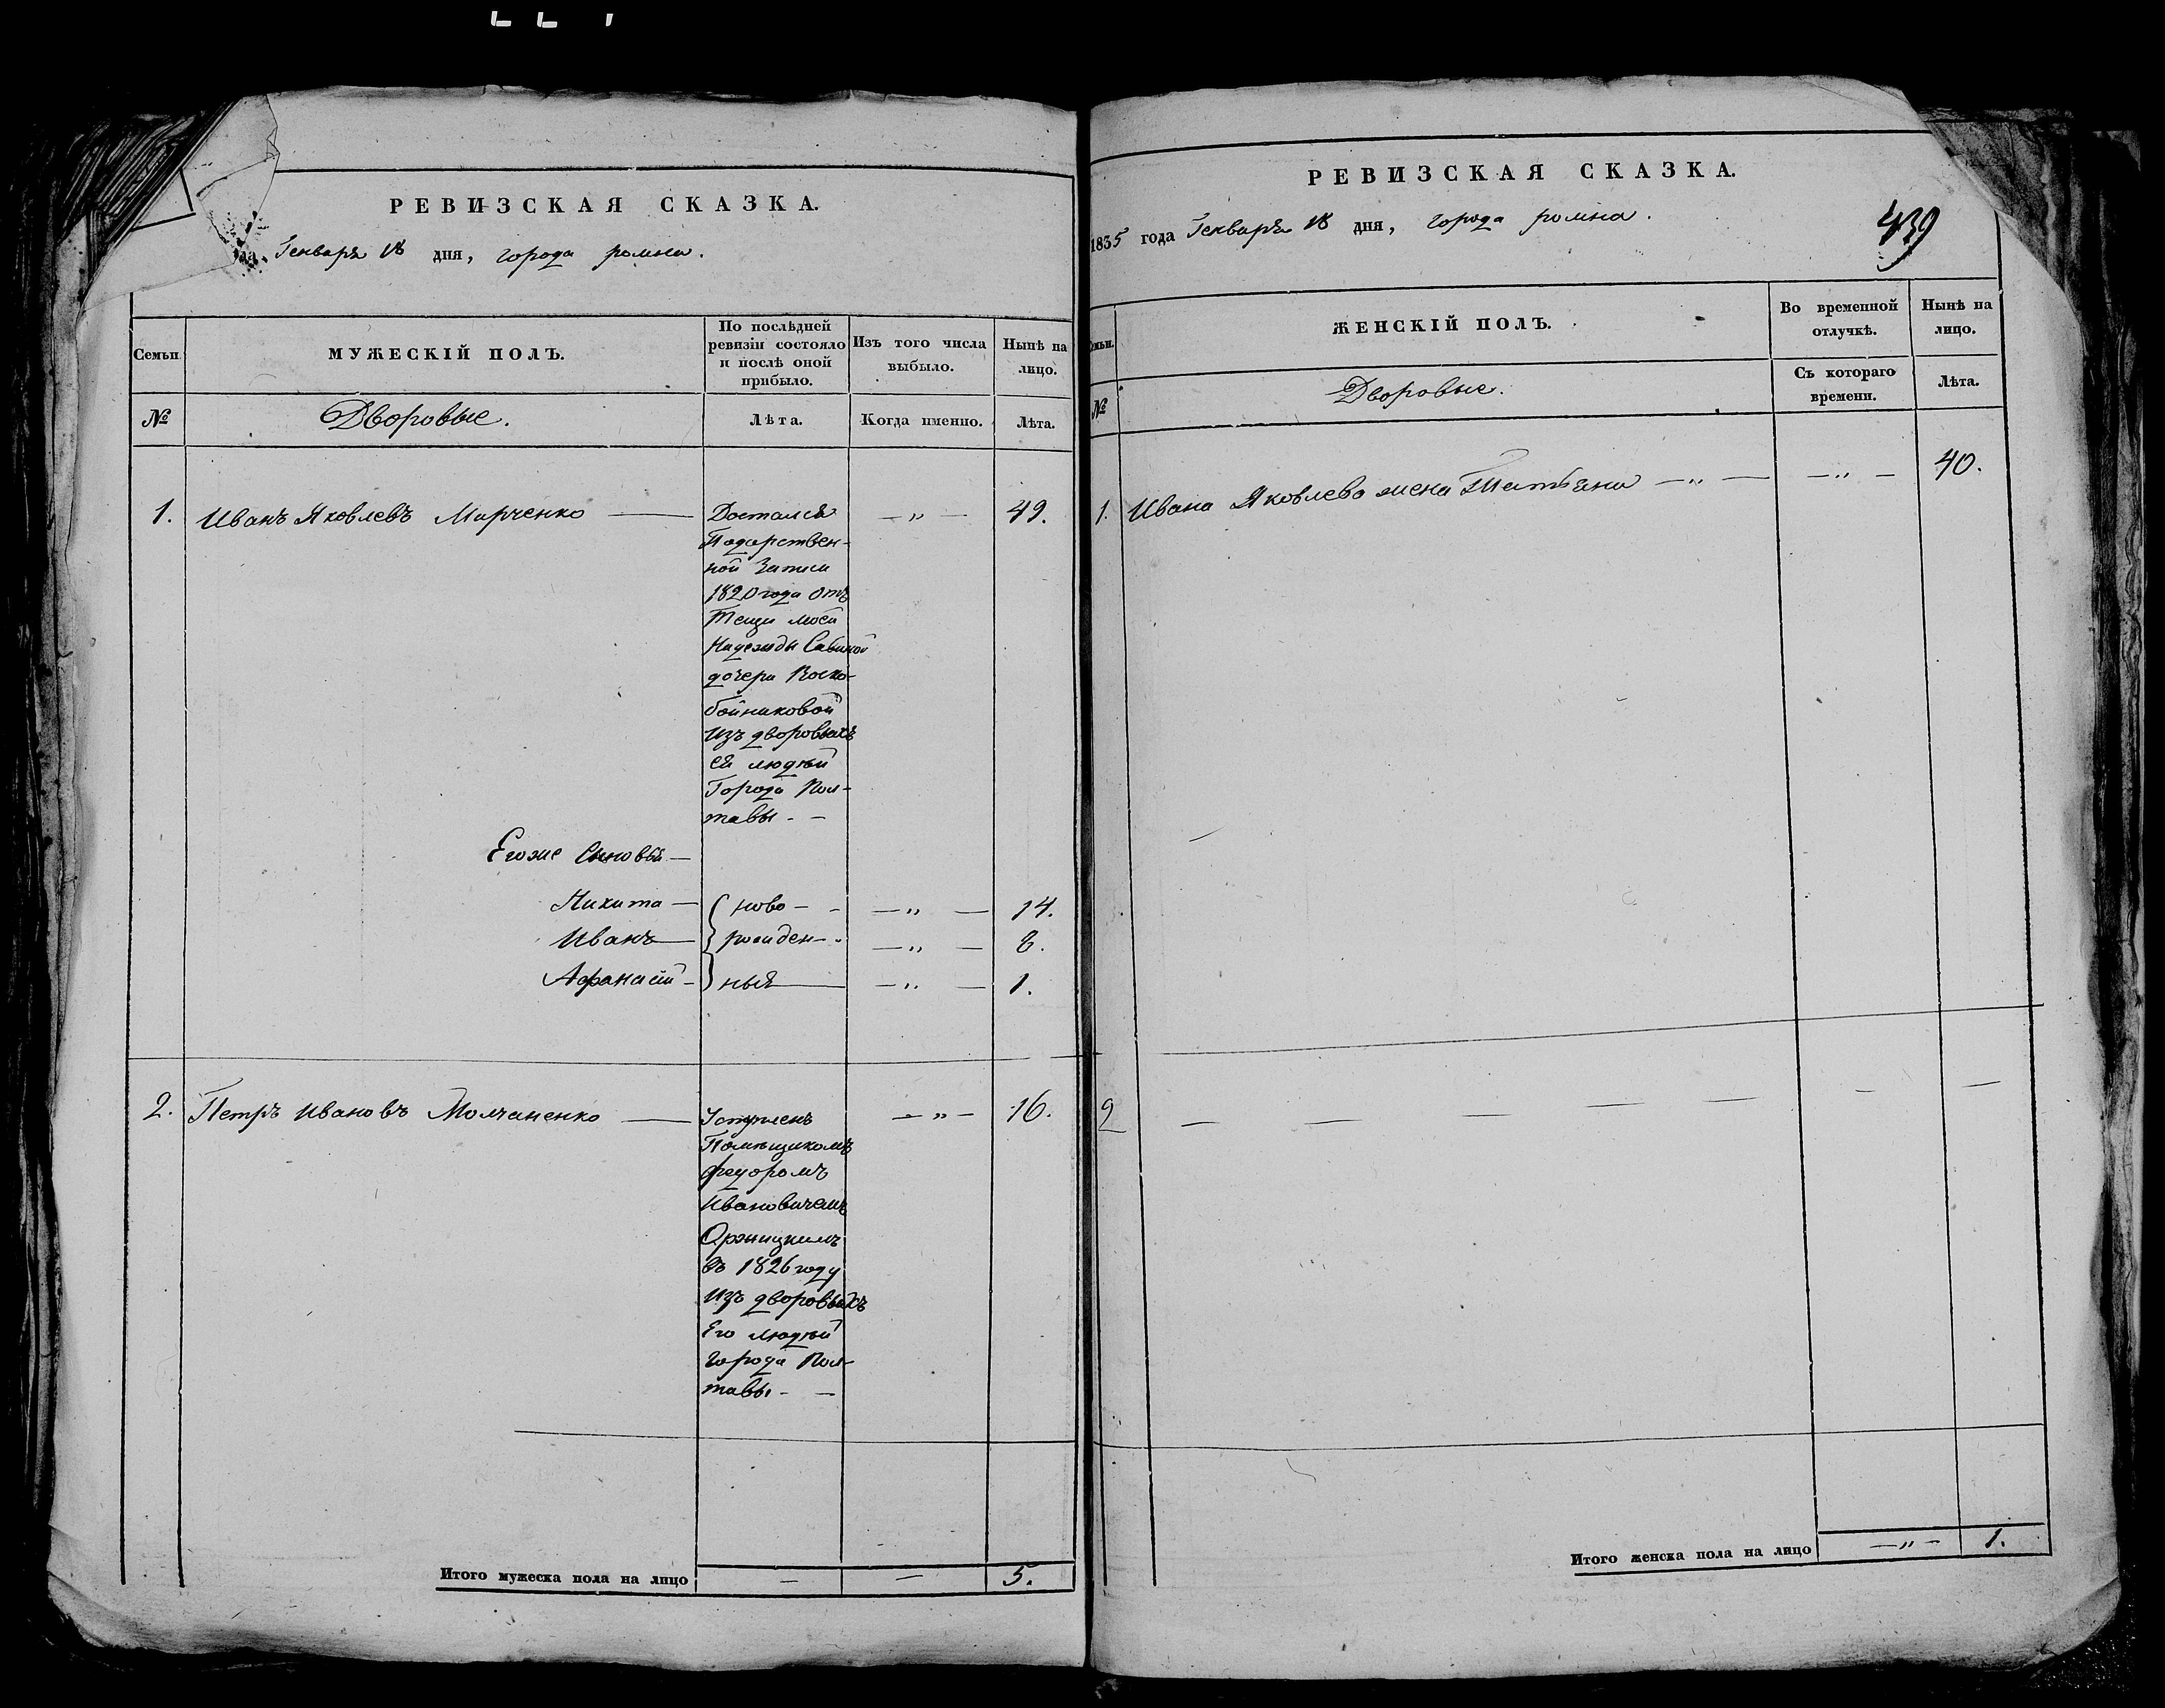 РЕВИЗСКАЯ СКАЗКА.
Генваря 18 дня, города ромна.
Семьи.
МУЖЕСКІЙ ПОЛЪ.
По послѣдней ревизіи состояло и послѣ оной прибыло.
Изъ того числа выбыло.
Нынѣ на лицо.
№
Дворовые.
Лѣта.
Когда именно.
Лѣта.
1. Иванъ Яковлевъ Марченко — Достался — „ — 49.
Подарствен-
ной Записи
1820 года отъ
Тещи моей
Надежды Савиной
дочери Воско-
бойниковой
изъ дворовыхъ
ея людей
Города Пол-
тавы - -
Егоже Сыновья —
Никита — ново - - — „ — 14.
Иванъ — рожден - - — „ — 8.
Афанасій — ныя — — „ — 1.
2. Петръ Ивановъ Молчаненко — Уступленъ — „ — 16.
Помѣщикомъ
Федоромъ
Ивановичемъ
Оржицкимъ
въ 1826 году
изъ дворовыхъ
Его людей
города Пол-
тавы - —
Итого мужеска пола на лицо — — 5.
РЕВИЗСКАЯ СКАЗКА.
1835 года Генваря 18 дня, города ромна.
439
Семьи.
ЖЕНСКІЙ ПОЛЪ.
Во временной отлучкѣ.
Нынѣ на лицо.
№
Дворовые.
Съ котораго времени.
Лѣта.
1. Ивана Яковлева жена Татьяна — „ — — „ — 40.
2 — — — — — — —
Итого женска пола на лицо — „ — 1.